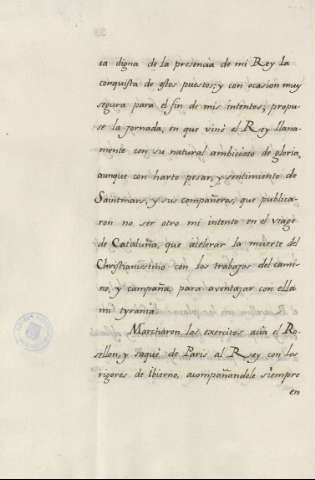 ca digna de la presencia de mi Rey la
conquista de estos puestos; y con ocasion muy
segura para el fin de mis intentos, propu-
se la jornada, en que vinó el Rey llana-
mente con su natural ambicioso de gloria,
aunque con harto pesar, y sentimiento de
Saintmars, y sus compañeros, que publica-
ron no ser otro mi intento en el viage
de Cataluña, que acelerar la muerte del
Christianissimo con los trabajos del cami-
no, y campaña para aventajar con ella
mi tyrania.
Marcharon los exercitos acia el Ro-
sellon, y saqué de Paris al Rey con los
rigores de Ibierno, acompañandole siempre
en